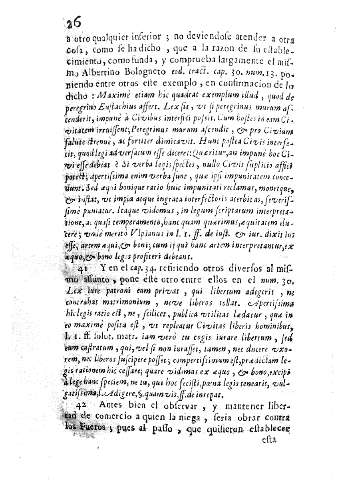 26
à otro qualquier inferior; no deviendose atender à otra
cosa, como se ha dicho, que à la razon de su estable-
cimiento, como funda, y comprueba largamente el mis-
mo Albertino Bologneto eod. tract. cap. 30. num. 13. po-
niendo entre otros este exemplo, en confirmacion de lo
dicho: Maximè etiam hic quadrat exemplum illud, quod de
peregrino Eustachius affert. Lex sit, ut si peregrinus murum as-
cenderit, impunè à Civibus interfici possit. Cum hostes in eam Ci-
vitatem irruissent, Peregrinus murum ascendit, & pro Civium
salute strenuè, ac fortiter dimicavit. Hunc postea Civis interfe-
cit, quod legi adversatum esse diceret: Quæritur, an impunè hoc Ci-
vi esse debeat? Si verba legis spectes, nullo Civis suplicio affici
potest; apertissima enim verba sunt, que ipsi impunitatem conce-
dunt. Sed æqui bonique ratio huic impunitati reclamat, monetque,
& instat, ut impia atque ingrata interfectoris acerbitas, severis-
simè puniatur. Itaque videmus, in legum scriptarum interpreta-
tione, æqui temperamento, hanc quam quærimus, æquitatem elu-
cere; undè meritò Ulpianus in l. 1. ff. de iust. & iur. dixit Ius
esse, artem æqui, & boni; cum ii qui hanc artem interpretantur, ex
æquo, & bono leges profiteri debeant.
41 Y en el cap. 34. refiriendo otros diversos al mis-
mo assunto, pone este otro entre ellos en el num. 30.
Lex iure patroni eum privat, qui libertum adegerit, ne
contrahat matrimonium, neve liberos tollat. Apertissima
hic legis ratio est, ne, scilicet, publica utilitas lædatur, quæ in
eo maximè posita est, ut repleatur Civitas liberis hominibus,
l. 1. ff. solut. matr. iam verò tu cogis iurare libertum, sed
eum castratum, qui, vel si non iurasset, tamen, nec ducere uxo-
rem, nec liberos suscipere posset; compertissimum est, prædictam le-
gis rationem hic cessare; quare vidimus ex æquo, & bono, excipi
à lege hanc speciem, ne tu, que hoc fecisti, pœna legis tenearis, vul-
gatissima l. Adigere, §. quamvis. ff. de iurepat.
42 Antes bien el observar, y mantener liber-
tad de comercio à quien la niega, seria obrar contra
los Fueros; pues al passo, que quisieron establecer
esta